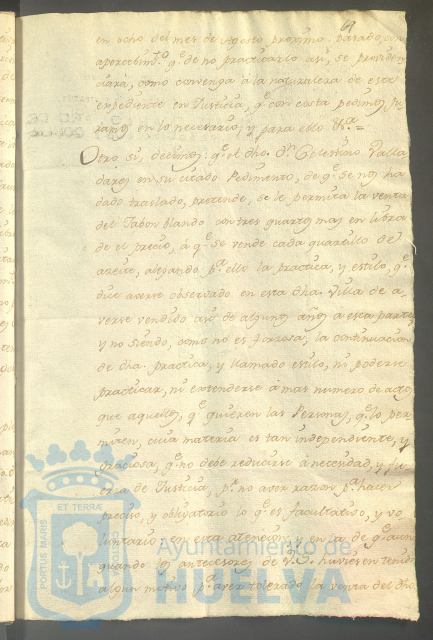 en ocho del mes de Agosto proximo pasado con
apercebim.to q.e de no practicarlo asi, se providen
ciará, como convenga á la naturaleza de este
expediente en Justicia, q.e con costa pedimos, Ju
ramos en lo necesario, y para ello &.a
Otro si, decimos: q.e el dho. D.n Celestino Valla
dares en su citado Pedimento, de q.e se nos ha
dado traslado, pretende, se le permita la venta
del Jabon blando con tres quartos mas en libra
de el precio, á q.e se vende cada quartillo de
azeite, alejando p.a ello la practica, y estilo, q.e
dice averse observado en esta dha. Villa de a
verse vendido asi de algunos años a esta parte,
y no siendo, como no es forzosa, la continuacion
de dha. practica, y llamado estilo, ni poderse
practicar, ni extenderse á mas numero de actos,
que aquellos, q.e quieren las Personas, q.e lo per
miten, cuia materia es tan independiente, y
graciosa, q.e no debe reducirse á necesidad, y fu
erza de Justicia, p.r no aver razon p.a hacer
preciso, y obligatorio lo q.e es facultativo, y vo
luntario, en esta atencion, y en la de q.e aun
quando los antecesores de V.S. huviesen tenido
algun motivo p.a aver tolerado la venta del dho.
PORTUS MARIS
ET TERRÆ
CUSTODIA
Ayuntamiento de
HUELVA